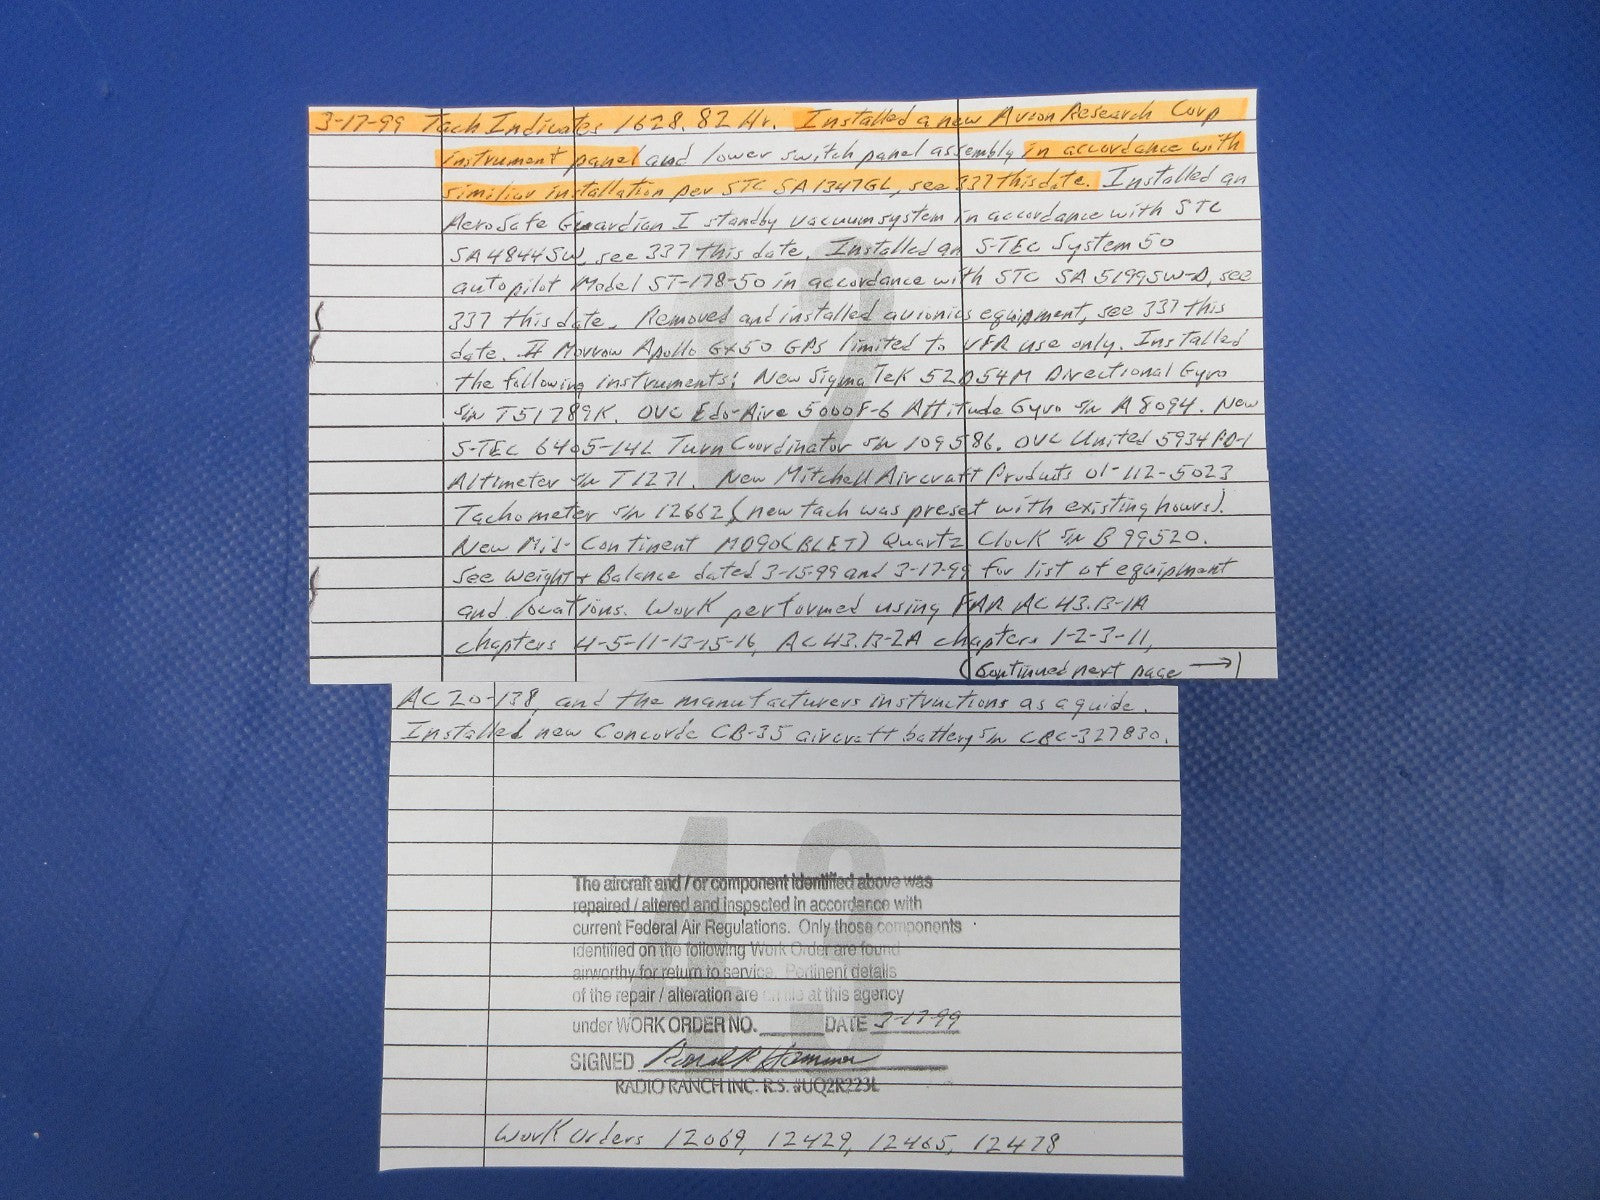 3-17-99 Tach Indicates 1628.82 Hr. Installed a new Avcon Research Corp
instrument panel and lower switch panel assembly in accordance with
similiar installation per STC SA1347GL, see 337 this date. Installed an
AeroSafe Guardian I standby vacuum system in accordance with STC
SA4844SW, see 337 this date. Installed an S-TEC System 50
autopilot Model ST-178-50 in accordance with STC SA5199SW-D, see
337 this date. Removed and installed avionics equipment, see 337 this
date. II Morrow Apollo GX50 GPS limited to VFR use only. Installed
the following instruments: New SigmaTek 52D54M Directional Gyro
S/N T51789K. OVC Edo-Aire 5000F-6 Attitude Gyro S/N A8094. New
S-TEC 6405-14L Turn Coordinator S/N 109586. OVC United 5934PD-1
Altimeter S/N T1271. New Mitchell Aircraft Products 01-112-5023
Tachometer S/N 12662 (new tach was preset with existing hours).
New Mid-Continent MD90(BLET) Quartz Clock S/N B99520.
See Weight + Balance dated 3-15-99 and 3-17-99 for list of equipment
and locations. Work performed using FAR AC 43.13-1A
chapters 4-5-11-13-15-16, AC 43.13-2A chapters 1-2-3-11,
(Continued next page →)
AC 20-138, and the manufacturers instructions as a guide.
Installed new Concorde CB-35 aircraft battery S/N CBC-327830.
42
43
The aircraft and / or component identified above was
repaired / altered and inspected in accordance with
current Federal Air Regulations. Only those components
identified on the following Work Order are found
airworthy for return to service. Pertinent details
of the repair / alteration are on file at this agency
under WORK ORDER NO. ______ DATE 3-17-99
SIGNED
RADIO RANCH INC. R.S. #UQ2R223L
Work Orders 12069, 12429, 12465, 12478